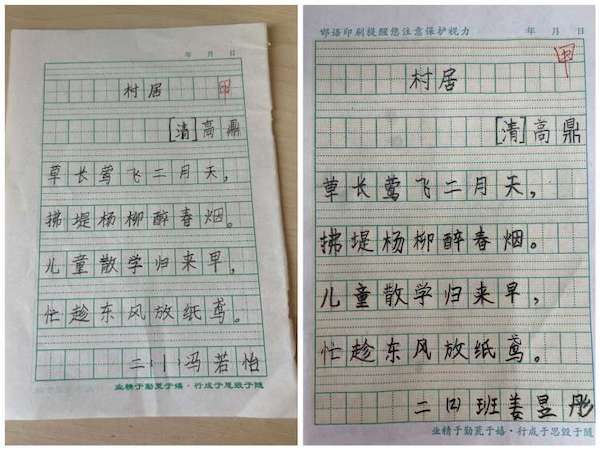 年 月 日
村居 甲
[清]高鼎
草长莺飞二月天，
拂堤杨柳醉春烟。
儿童散学归来早，
忙趁东风放纸鸢。
二(1)冯若怡
业精于勤荒于嬉·行成于思毁于随
邯语印刷提醒您注意保护视力 年 月 日
甲
村居
[清]高鼎
草长莺飞二月天，
拂堤杨柳醉春烟。
儿童散学归来早，
忙趁东风放纸鸢。
二(2)班姜昱彤
业精于勤荒于嬉·行成于思毁于随